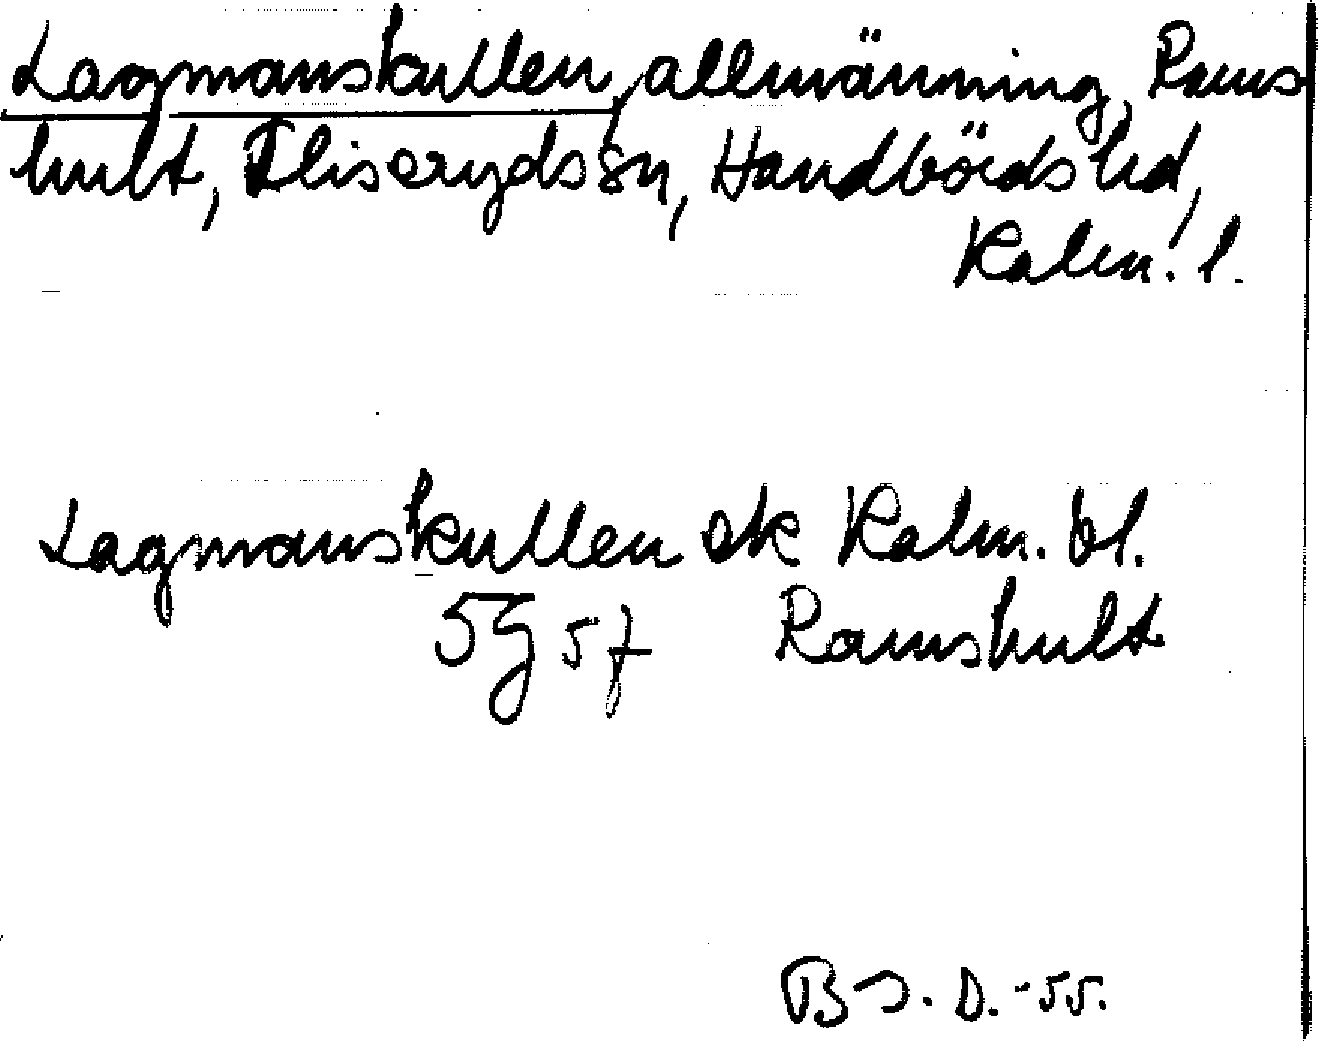 Lagmanskullen, allmänning, Rams
hult, Fliserydssn, Handbördshd,
Kalm. l.
Lagmanskullen ek Kalm. bl.
5G 5f Ramshult
B-J. D. -55.